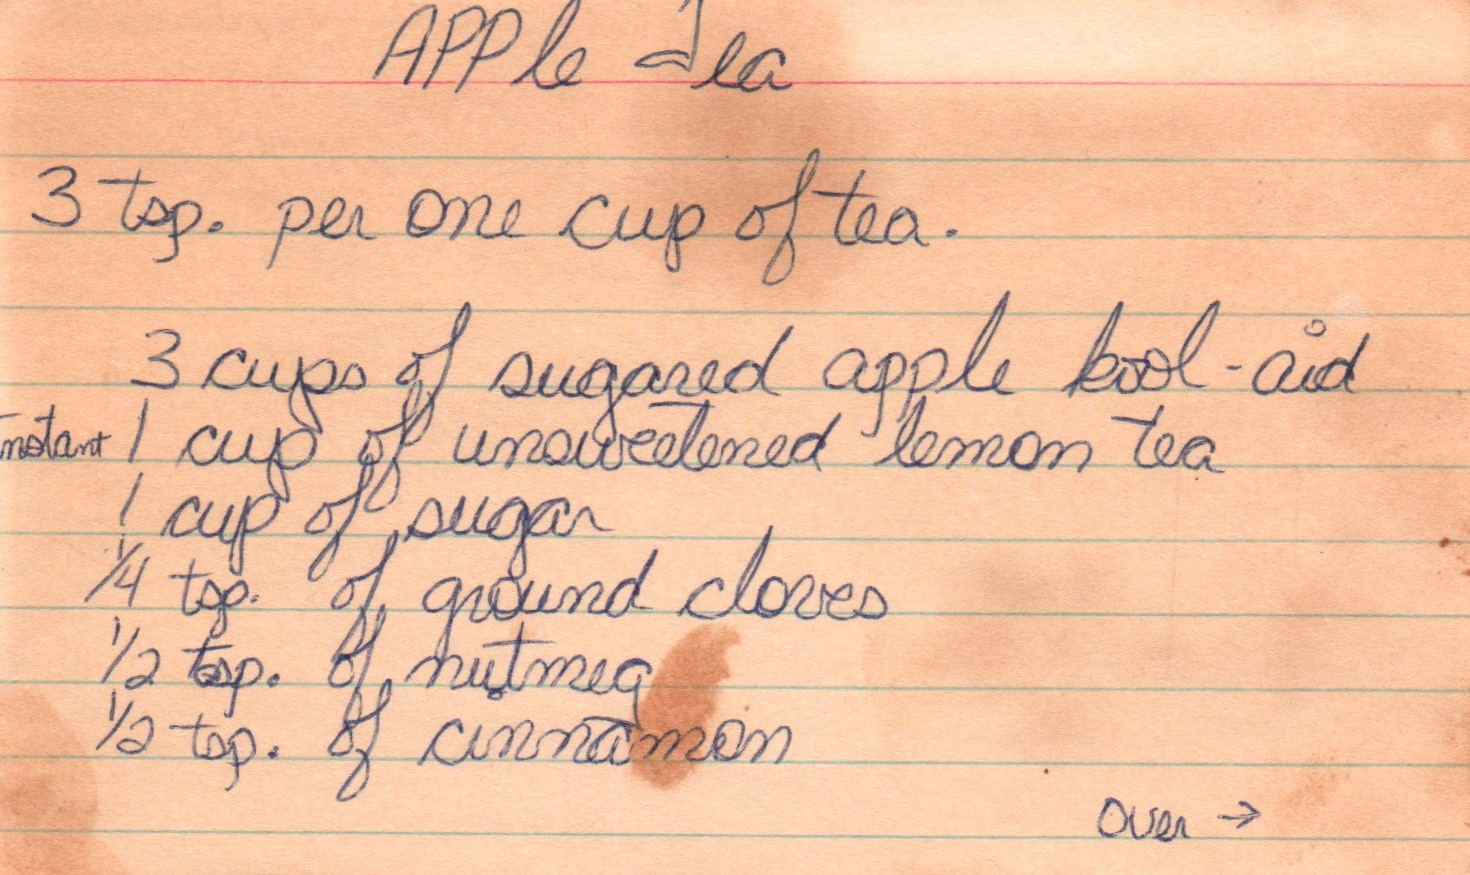 APPle Tea
3 tsp. per one cup of tea.
3 cups of sugared apple kool-aid
instant 1 cup of unsweetened lemon tea
1 cup of sugar
1/4 tsp. of ground cloves
1/2 tsp. of nutmeg
1/2 tsp. of cinnamon
over →